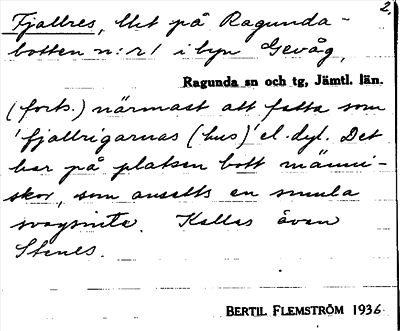 2.
Fjallres, litet på Ragunda-
botten n:r 1 i byn Gevåg,
Ragunda sn och tg, Jämtl. län.
(forts.) närmast att fatta som
'fjallrigarnas (hus)' el. dyl. Det
har på platsen bott männi-
skor, som ansetts en smula
svagsinta. Kallas även
Stenes.
BERTIL FLEMSTRÖM 1936